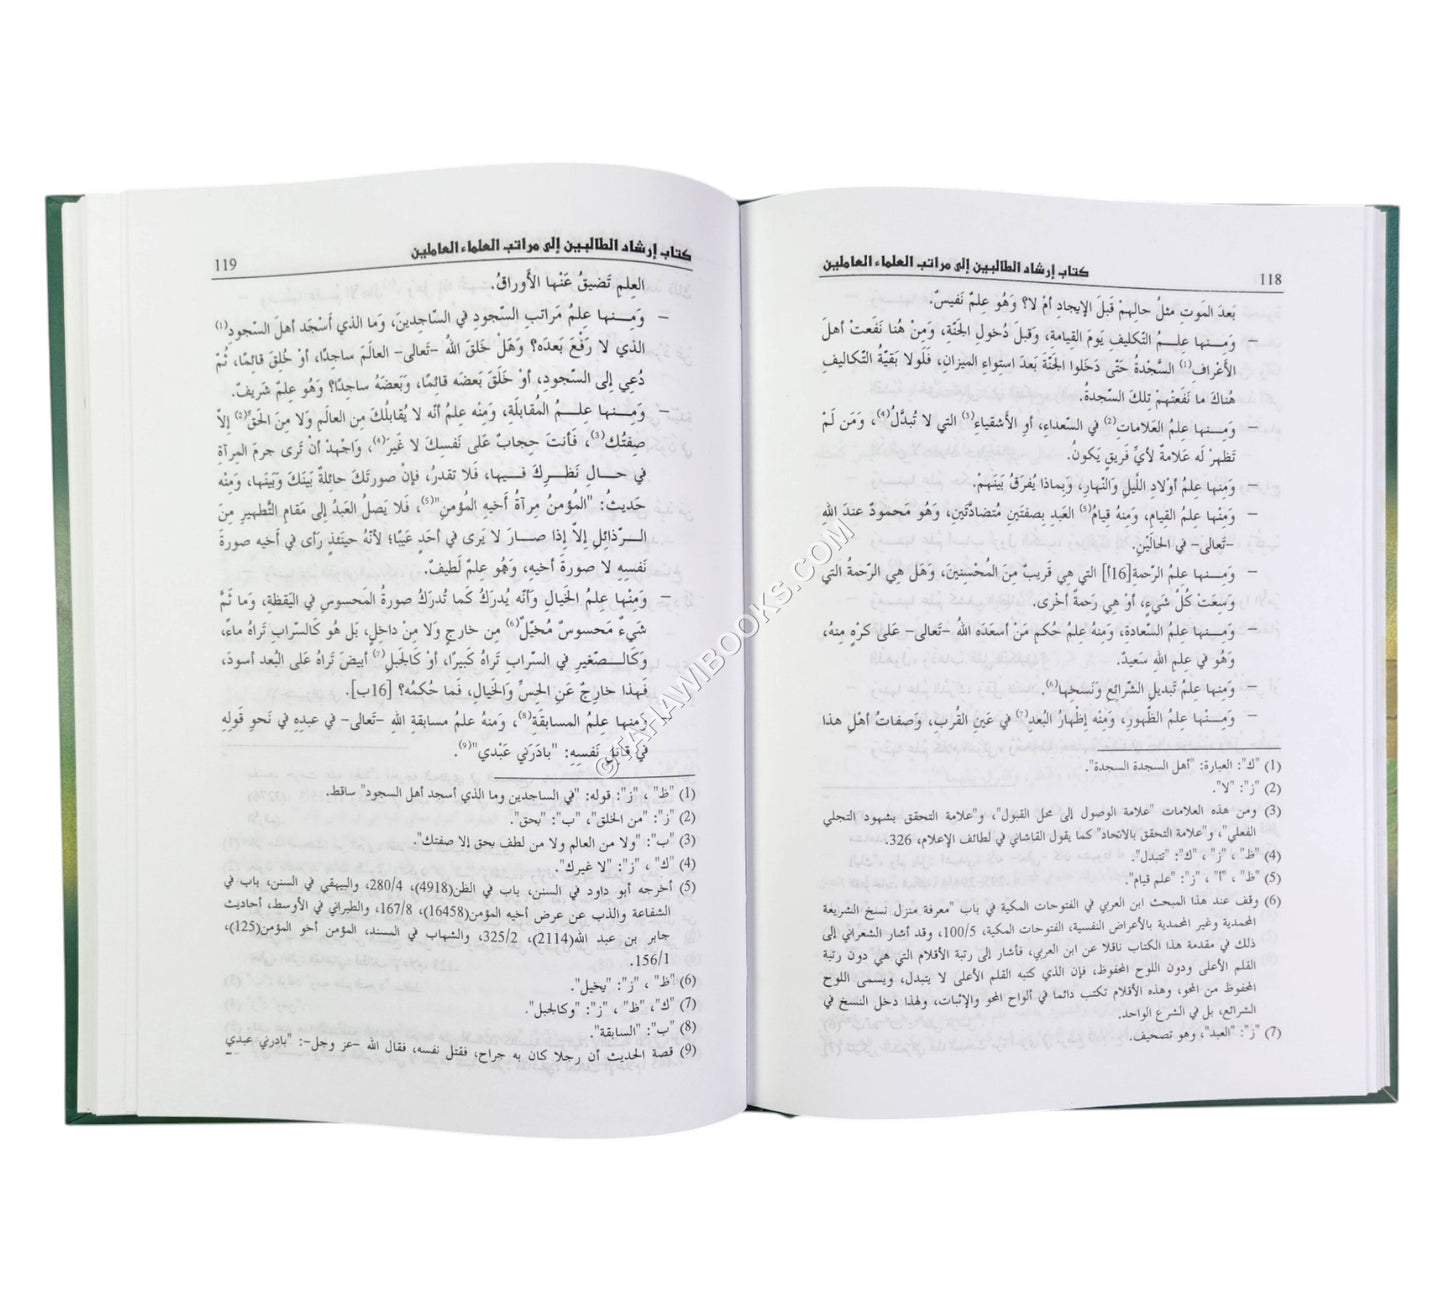 118 كتاب إرشاد الطالبين إلى مراتب العلماء العاملين
بَعدَ المَوتِ مثلُ حالِهِمْ قَبلَ الإيجادِ أمْ لا؟ وَهُو عِلمٌ نَفيسٌ.
– وَمِـــنها عِلـــمُ التّكليفِ يَومَ القِيامةِ، وَقبلَ دُخولِ الجَنّةِ، وَمِنْ هُنا نَفَعتْ أهلَ
الأَعْراف(1) السَّجْدةُ حَتّى دَخَلوا الجنّةَ بَعدَ استواءِ الميزانِ، فَلَولا بَقيّةُ التّكاليفِ
هُناكَ ما نَفَعَتهمْ تِلكَ السّجدةُ.
– وَمِـــنها عِلمُ العَلامات(2) في السّعداءِ، أو الأَشقياءِ(3) التي لا تُبدَّلُ(4)، وَمَن لَمْ
تَظهرْ لَه عَلامةٌ لأيِّ فَريقٍ يَكونُ.
– وَمِنها عِلمُ أَوْلادِ اللّيلِ وَالنّهارِ، وَبِماذا يُفرَقُ بَيَنَهمْ.
– وَمِنْها عِلمُ القِيامِ، وَمنهُ قِيامُ(5) العَبدِ بِصفتَينِ مُتضادَّتَينِ، وَهُو مَحمودٌ عندَ اللهِ
–تَعالى– في الحالَيْنِ.
– وَمِـــنها عِلمُ الرّحمة[16أ] التي هي قَريبٌ مِنَ المُحْسِنينَ، وَهَل هِي الرّحمةُ التي
وَسِعَتْ كُلَّ شَيءٍ، أوْ هِي رَحمةٌ أخْرى.
– وَمِـــنها عِلمُ السّعادة، وَمِنهُ عِلمُ حُكمِ مَنْ أسعَدَه اللهُ –تَعالى– عَلى كُرْهٍ مِنهُ،
وَهُو في عِلمِ اللهِ سَعيدٌ.
– وَمِنها عِلمُ تَبديلِ الشّرائعِ وَنَسخِها(6).
– وَمِـــنْها عِلمُ الظّهورِ، وَمِنْه إظْهارُ البُعدِ(7) في عَينِ القُربِ، وَصفاتُ أهْلِ هذا
(1) "ك": العبارة: "أهل السجدة السجدة".
(2) "ز": "لا".
(3) ومن هذه العلامات "علامة الوصول إلى محل القبول"، و"علامة التحقق بشهود التجلي
الفعلي"، و"علامة التحقق بالاتحاد" كما يقول القاشاني في لطائف الإعلام، 326.
(4) "ظ" ، "ز" ، "ك": "تتبدل".
(5) "ظ" ، "أ" ، "ز": "علم قيام".
(6) وقف عند هذا المبحث ابن العربي في الفتوحات المكية في باب "معرفة منزل نسخ الشريعة
المحمدية وغير المحمدية بالأعراض النفسية، الفتوحات المكية، 100/5، وقد أشار الشعراني إلى
ذلك في مقدمة هذا الكتاب ناقلا عن ابن العربي، فأشار إلى رتبة الأقلام التي هي دون رتبة
القلم الأعلى ودون اللوح المحفوظ، فإن الذي كتبه القلم الأعلى لا يتبدل، ويسمى اللوح
المحفوظ من المحو، وهذه الأقلام تكتب دائما في ألواح المحو والإثبات، ولهذا دخل النسخ في
الشرائع، بل في الشرع الواحد.
(7) "ز": "العبد"، وهو تصحيف.
كتاب إرشاد الطالبين إلى مراتب العلماء العاملين 119
العِلمِ تَضيقُ عَنْها الأَوراقُ.
– وَمِـــنها عِلمُ مَراتبِ السّجودِ في السّاجِدينَ، وَما الذي أَسْجَد أهلَ السّجودِ(1)
الذي لا رَفْعَ بَعدَه؟ وَهَلْ خَلَقَ اللهُ –تَعالى– العالَمَ ساجِدًا، أوْ خُلِقَ قائِمًا، ثُمّ
دُعِي إلى السّجودِ، أو خَلَقَ بَعضَه قائمًا، وَبَعضَهُ ساجدًا؟ وَهُو عِلمٌ شَريفٌ.
– وَمِـــنها عِلـــمُ المُقابلَةِ، وَمِنه عِلمُ أنّه لا يُقابلُكَ مِن العالَمِ وَلا مِنَ الحَقِّ(2) إلاّ
صِفتُك(3)، فَأنتَ حِجابٌ عَلى نَفسِكَ لا غَيرَ(4)، وَاجْهدْ أنْ تَرى جِرمَ المِرآةِ
في حـــالِ نَظَرِكَ فـــيها، فَلا تَقدرُ، فَإنْ صورتَكَ حائلةٌ بَيَنَكَ وَبَيَنَها، وَمِنْه
حَديثُ: "المُؤمنُ مِرآةُ أَخيهِ المُؤمنِ"(5)، فَلا يَصلُ العَبدُ إلى مَقامِ التَّطهيرِ مِنَ
الـــرّذائلِ إلاّ إذا صـــارَ لا يَرى في أحَدٍ عَيبًا؛ لأنّهُ حينَئذٍ رأى في أخيه صورةَ
نَفسِهِ لا صورةَ أخيهِ، وَهُو عِلمٌ لَطيفٌ.
– وَمِنْها عِلمُ الخَيالِ وَأنّه يُدرَكُ كَما تُدرَكُ صورةُ المَحسوسِ في اليَقظةِ، وَما ثَمَّ
شَيءٌ مَحسوسٌ مُخيّلٌ(6) مِن خارجٍ وَلا مِن داخِلٍ، بَل هُو كَالسّرابِ تَراهُ ماءً،
وَكَالـــصّغيرِ في السّرابِ تَراهُ كَبيرًا، أوْ كَالجَبلِ(7) أبيضَ تَراهُ عَلى البُعدِ أسودَ،
فَهذا خارِجٌ عَنِ الحِسِّ وَالخَيالِ، فَما حُكمُه؟ [16ب].
– وَمنها عِلمُ المسابقَةِ(8)، وَمنهُ عِلمُ مسابقةِ اللهِ –تَعالى– في عبدِهِ في نَحوِ قَولِهِ
في قاتِلِ نَفسِهِ: "بادَرَني عَبْدي"(9).
(1) "ظ" ، "ز": قوله: "في الساجدين وما الذي أسجد أهل السجود" ساقط.
(2) "ز": "من الخلق"، "ب": "بحق".
(3) "ب": "ولا من العالم ولا من لطف بحق إلا صفتك".
(4) "ك" ، "ز": "لا غيرك".
(5) أخرجه أبو داود في السنن، باب في الظن(4918)، 280/4، والبيهقي في السنن، باب في
الشفاعة والذب عن عرض أخيه المؤمن(16458)، 167/8، والطبراني في الأوسط، أحاديث
جابر بن عبد الله(2114)، 325/2، والشهاب في المسند، المؤمن أخو المؤمن(125)،
156/1.
(6) "ظ" ، "ز": "يخيل".
(7) "ك"، "ظ" ، "ز": "وكالجبل".
(8) "ب": "السابقة".
(9) قصة الحديث أن رجلا كان به جراح، فقتل نفسه، فقال الله –عز وجل–: "بادرني عبدي
©TAHAWIBOOKS.COM